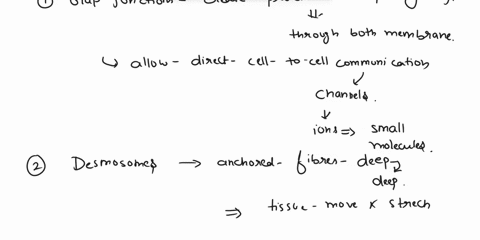 ① Gap junction
through both membrane.
↳ allow - direct - cell - to-cell communication
channels.
ions ⇒ small molecules.
② Desmosomes → anchored - fibres - deep
deep.
⇒ tissue - move x strech